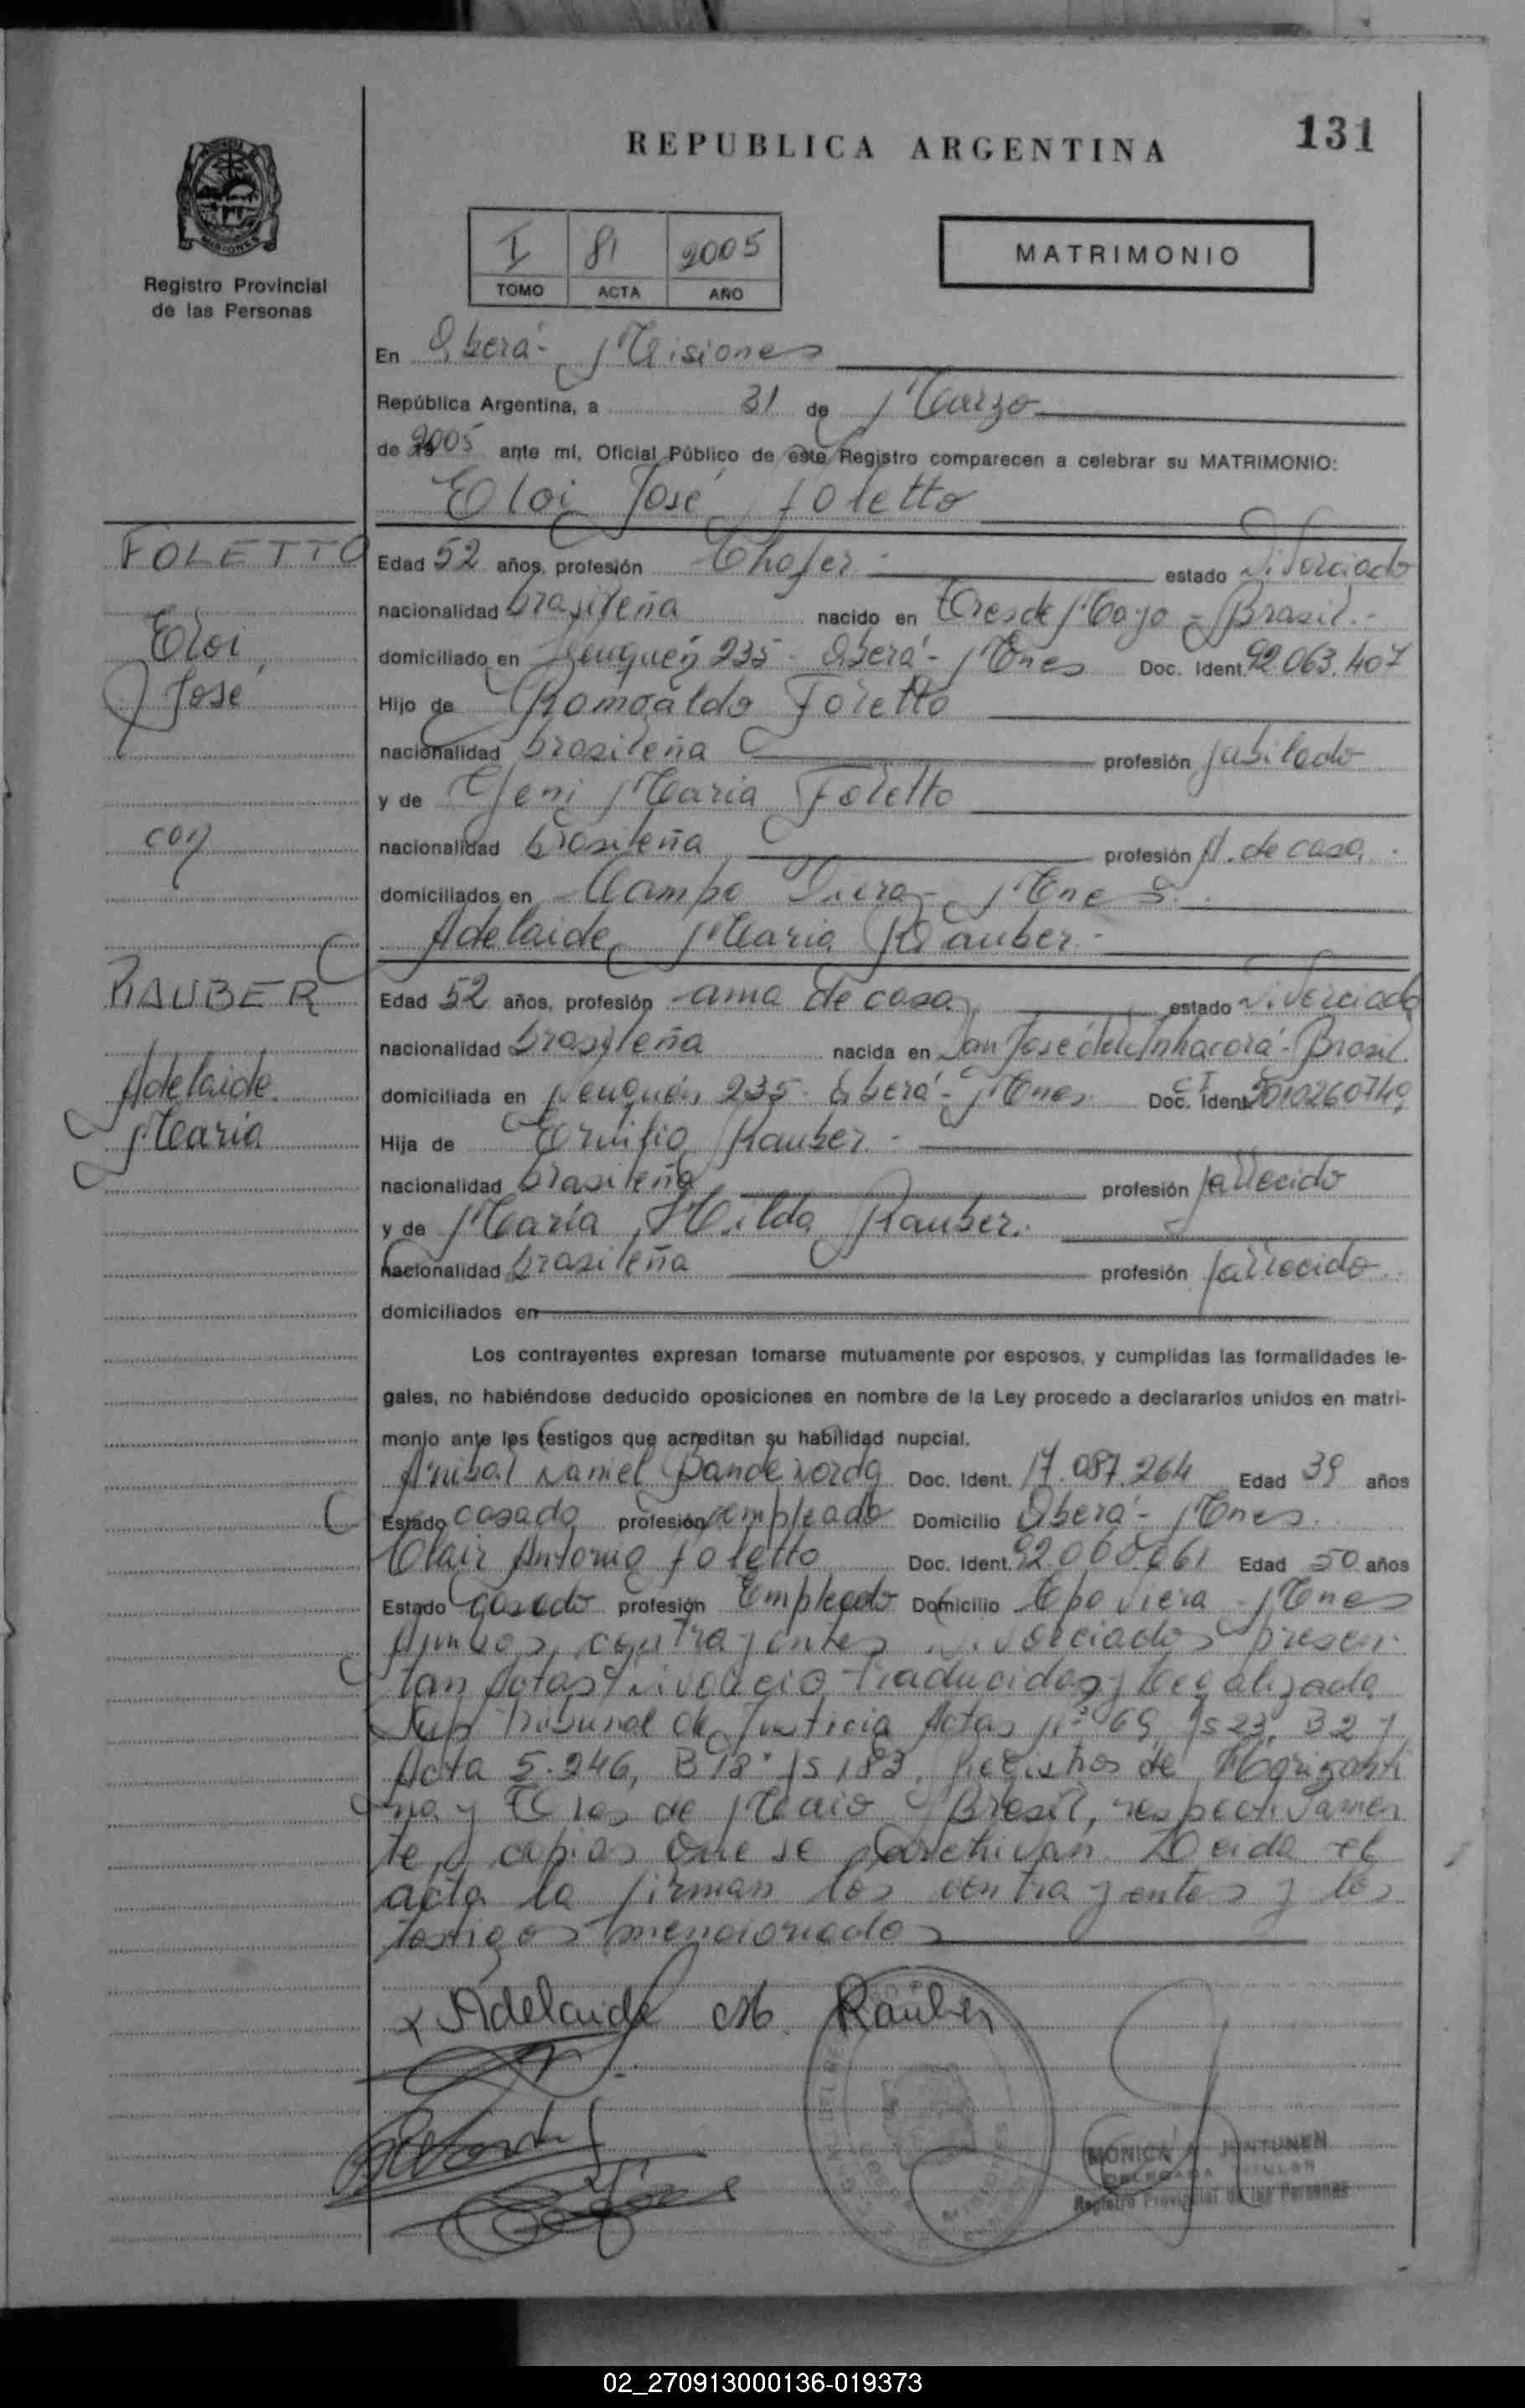 131
REPUBLICA ARGENTINA
MISIONES
Registro Provincial
de las Personas
I 81 2005
TOMO ACTA AÑO
MATRIMONIO
En Oberá - Misiones
República Argentina, a 31 de Marzo
de 2005 ante mí, Oficial Público de este Registro comparecen a celebrar su MATRIMONIO:
Eloi José Foletto
FOLETTO
Eloi
José
con
RAUBER
Adelaide
Maria
Edad 52 años, profesión Chofer - estado Divorciado
nacionalidad brasileña nacido en Tres de Mayo - Brasil.-
domiciliado en Neuquén 235 - Oberá - Mnes Doc. Ident. 92.063.407
Hijo de Romoaldo Foletto
nacionalidad brasileña profesión Jubilado
y de Geni Maria Foletto
nacionalidad brasileña profesión A. de casa.
domiciliados en Campo Viera - Mnes.
Adelaide Maria Rauber -
Edad 52 años, profesión ama de casa estado Divorciada
nacionalidad brasileña nacida en San José del Inhacorá - Brasil.
domiciliada en Neuquén 235 - Oberá - Mnes. Doc. Ident. CI 5010260749
Hija de Rauber -
nacionalidad brasileña profesión fallecido
y de María Hilda Rauber.
nacionalidad brasileña profesión fallecido
domiciliados en
Los contrayentes expresan tomarse mutuamente por esposos, y cumplidas las formalidades le-
gales, no habiéndose deducido oposiciones en nombre de la Ley procedo a declararlos unidos en matri-
monio ante los testigos que acreditan su habilidad nupcial.
Anibal Daniel Doc. Ident. 17.087.264 Edad 39 años
Estado casado profesión empleado Domicilio Oberá - Mnes.
Clair Antonio Foletto Doc. Ident. 92.000.061 Edad 50 años
Estado Casado profesión Empleado Domicilio Cpo Viera - Mnes
Ambos contrayentes divorciados presen-
tan Actas divorcio traducidas y legalizada
Sup Tribunal de Justicia Actas Nº 69, fs 23, B2 y
Acta 5.246, B 18 fs 183, Registros de Horizonti
na y Tres de Maio Brasil, respectivamen
te, copias que se archivan. Leida el
acta la firman los contrayentes y los
testigos mencionados
x Adelaide M. Rauber
MONICA A. HINTUNEN
DELEGADA TITULAR
Registro Provincial de las Personas
02_270913000136-019373